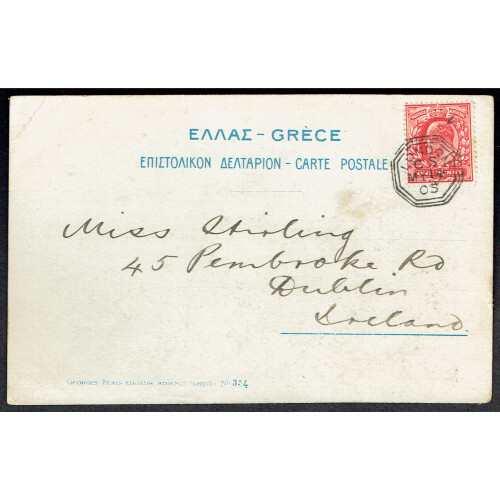 ΕΛΛΑΣ - GRÈCE
ΕΠΙΣΤΟΛΙΚΟΝ ΔΕΛΤΑΡΙΟΝ - CARTE POSTALE
MY 14
05
Miss Stirling
45 Pembroke Rd
Dublin
Ireland.
GEORGES EDITEUR ATHENES (GRÈCE) No 324